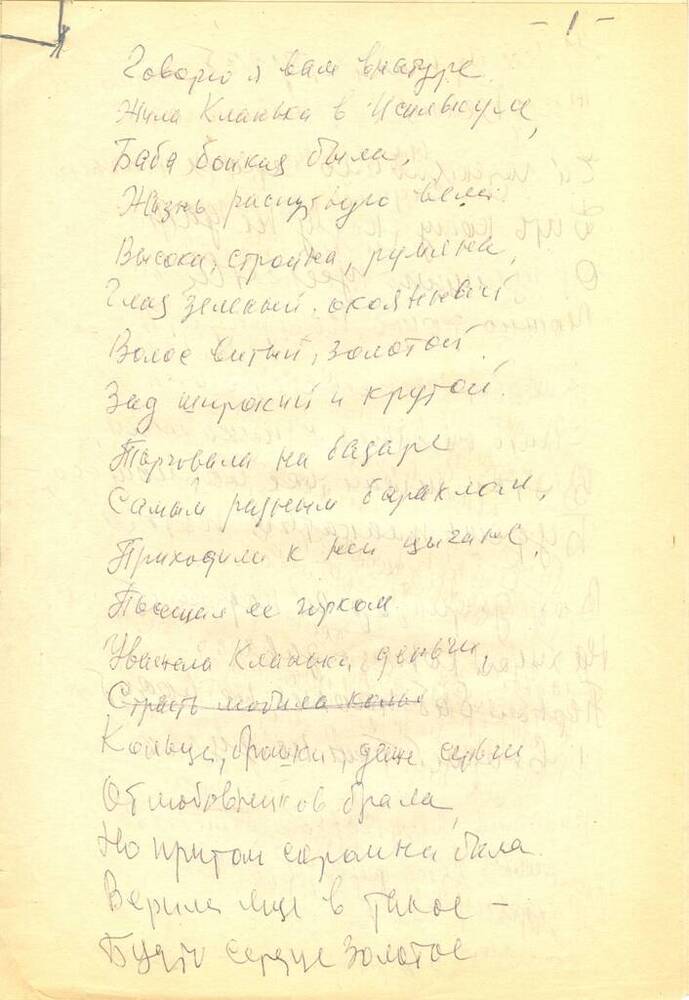 - 1 -
Говорю я вам в натуре
Жила Кланька в Исилькуле,
Баба бойкая была,
Жизнь распутную вела
Высока, стройна, румяна,
Глаз зеленый, окаянный
Волос витый, золотой.
Зад широкий и крутой.
Торговала на базаре
Самым разным барахлом,
Приходили к ней цыгане,
Посещал ее горком
Уважала Кланька деньги,
Страсть любила кольца
Кольца, брошки, даже серьги
От любовников брала,
Но притом скромна была.
Верила еще в такое -
Будто сердце золотое